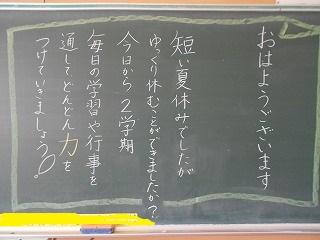 おはようございます
短い夏休みでしたが
ゆっくり休むことができましたか?
今日から2学期
毎日の学習や行事を
通してどんどん力を
つけていきましょう!